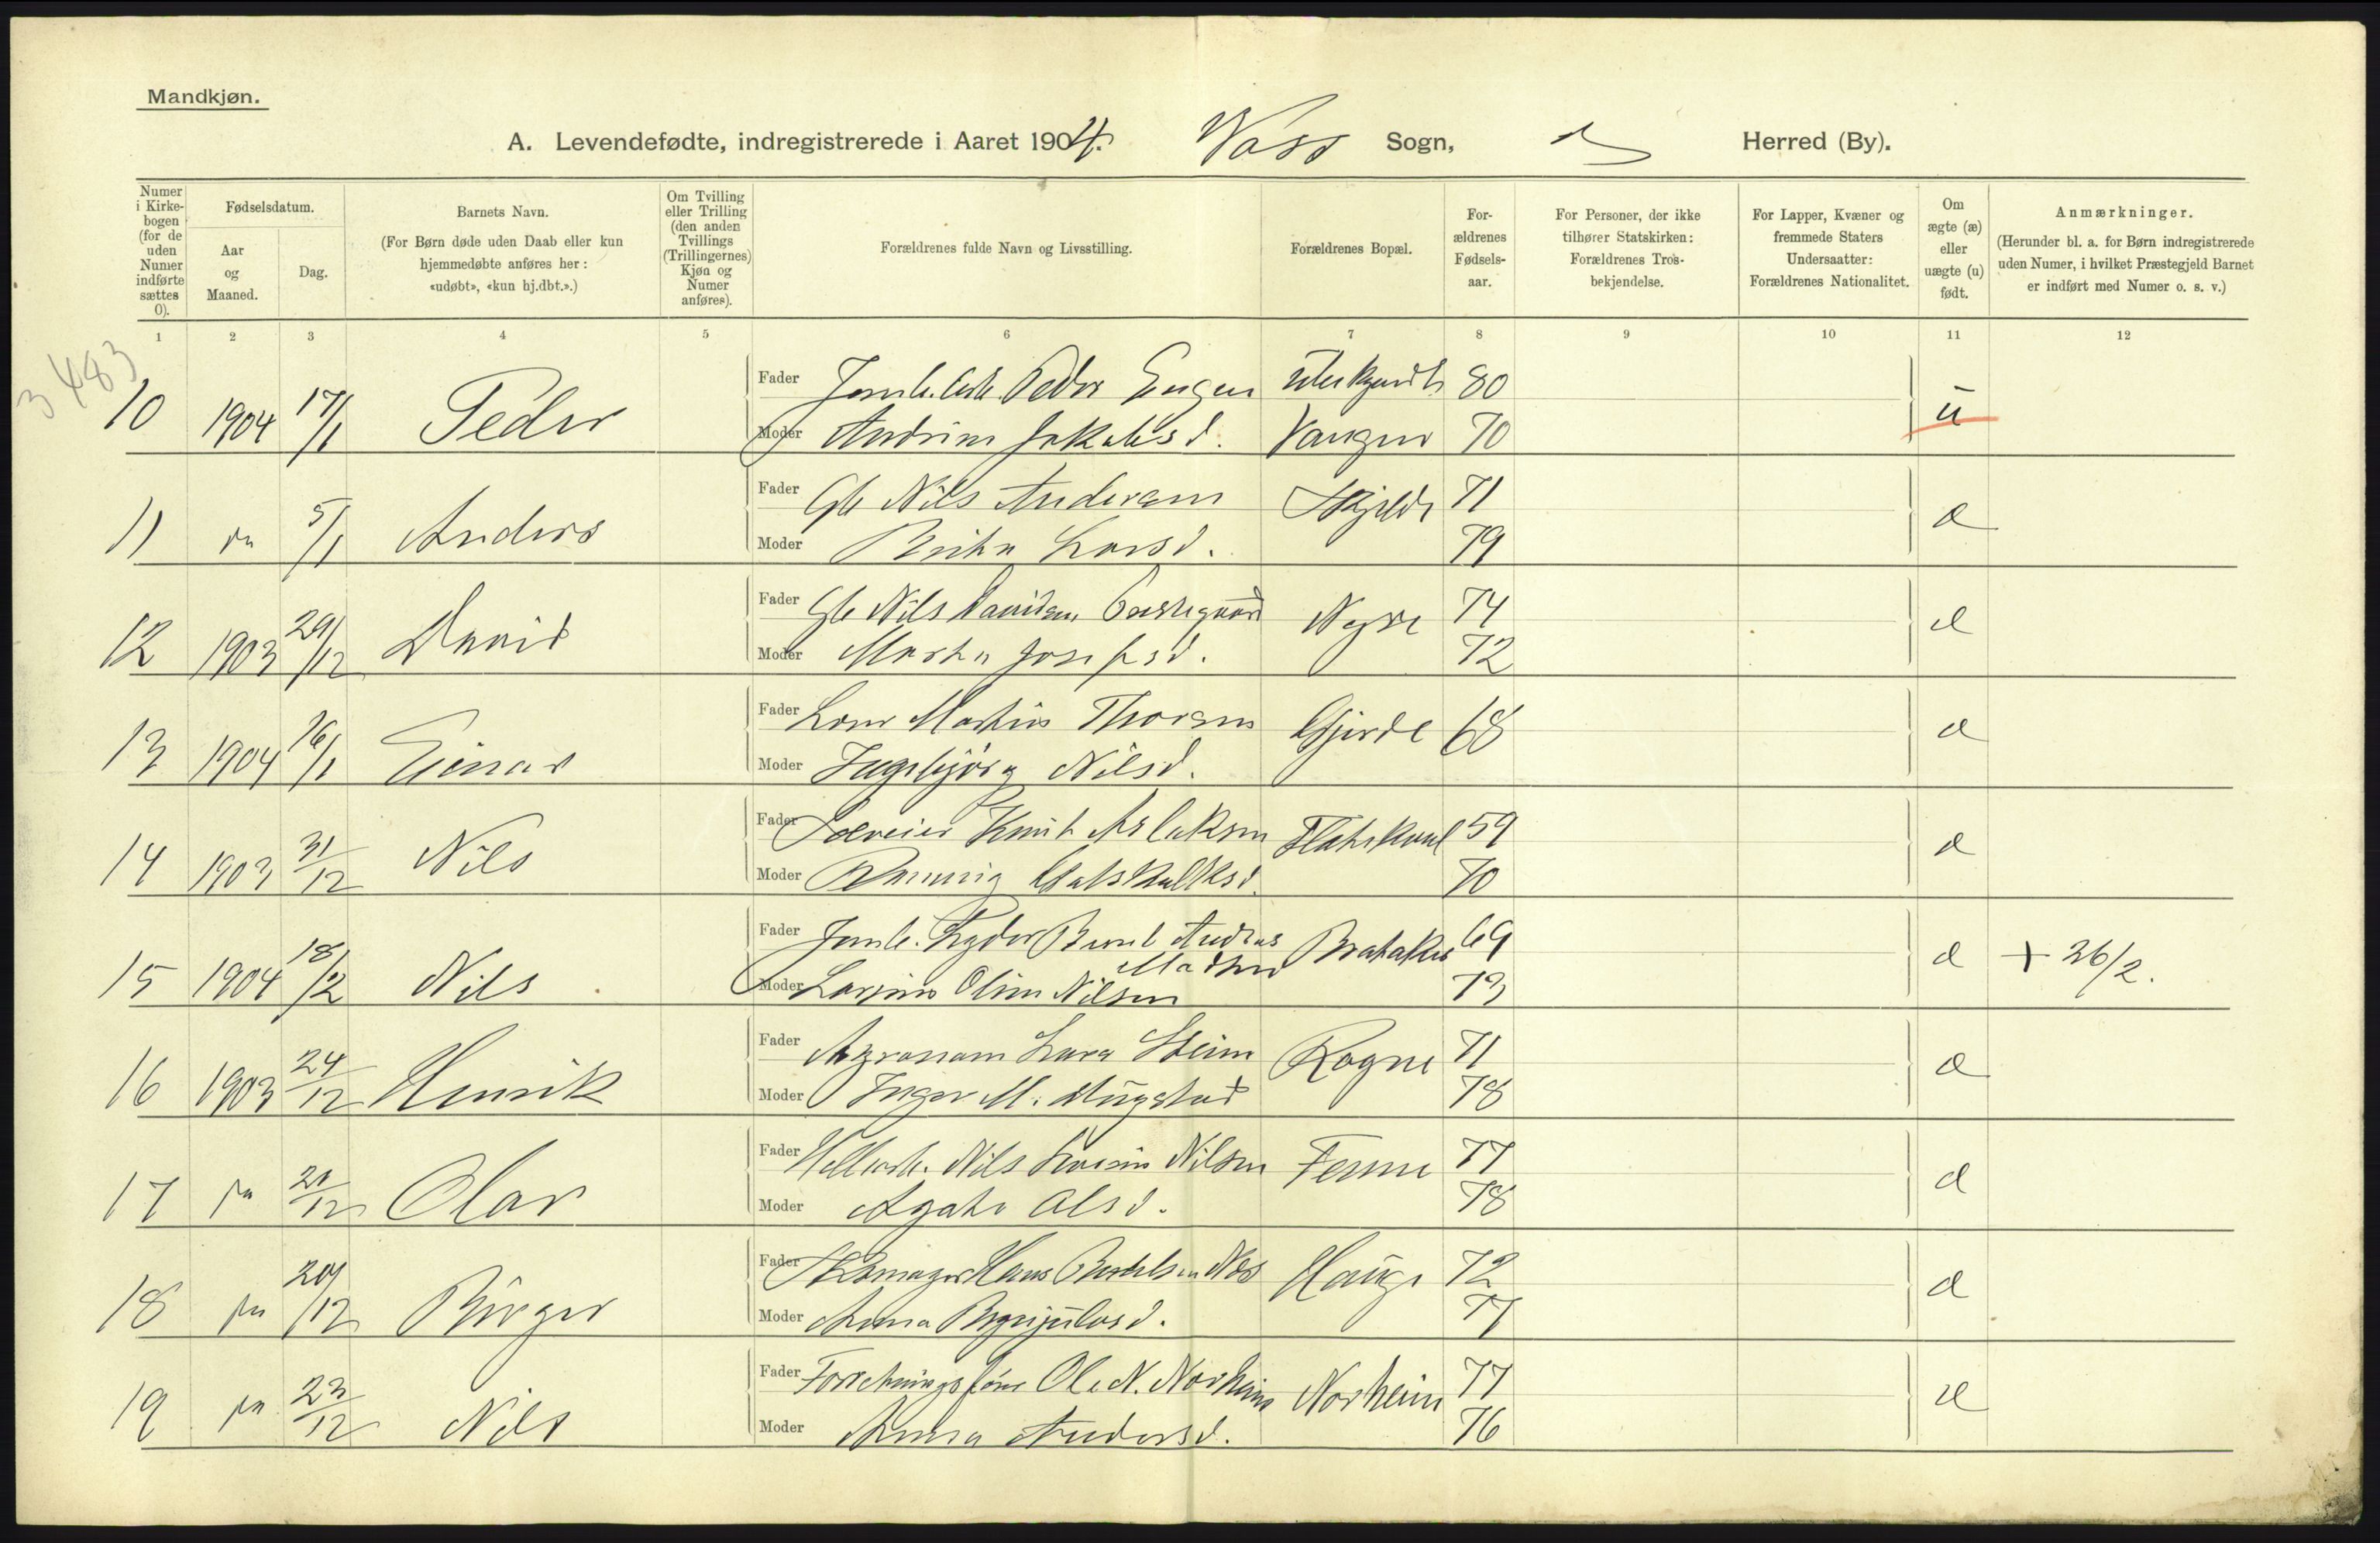 Mandkjøn.
A. Levendefødte, indregistrerede i Aaret 1904. Voss Sogn, Herred (By).
Numer i Kirkebogen (for de uden Numer indførte sættes 0).
Fødselsdatum.
Aar og Maaned.
Dag.
Barnets Navn.
(For Børn døde uden Daab eller kun hjemmedøbte anføres her: «udøbt», «kun hj.dbt.».)
Om Tvilling eller Trilling (den anden Tvillings (Trillingernes) Kjøn og Numer anføres).
Forældrenes fulde Navn og Livsstilling.
Forældrenes Bopæl.
Forældrenes Fødselsaar.
For Personer, der ikke tilhører Statskirken: Forældrenes Trosbekjendelse.
For Lapper, Kvæner og fremmede Staters Undersaatter: Forældrenes Nationalitet.
Om ægte (æ) eller uægte (u) født.
Anmærkninger.
(Herunder bl. a. for Børn indregistrerede uden Numer, i hvilket Præstegjeld Barnet er indført med Numer o. s. v.)
1 2 3 4 5 6 7 8 9 10 11 12
3483
10 1904 17/1 Peder Fader Peder 80 u
Moder Jakobsd. Vangen 70
11 5/1 Anders Fader Gbr Nils Andersen Skjelde 71 æ
Moder Brita Larsd. 79
12 1903 29/12 David Fader Gbr Nils Davidsen Præstegaard 74 æ
Moder Martha Josefsd. 72
13 1904 16/1 Einar Fader Martin Thorsen Gjerde 68 æ
Moder Ingebjörg Nilsd.
14 1903 31/12 Nils Fader Knut Aslaksen 59 æ
Moder Ranveig 70
15 1904 18/2 Nils Fader Andreas Madsen 69 æ + 26/2.
Moder Nilsen 73
16 1903 24/12 Henrik Fader Agronom Lars Rogne 71 æ
Moder Inger M. 78
17 21/12 Olav Fader Nils Nilsen Fenne 77 æ
Moder Agate Olsd. 78
18 20/12 Birger Fader Skomager Hans Næs Hauge 72 æ
Moder Anna Brynjulvsd. 77
19 23/12 Nils Fader Ole N. Norheim Norheim 77 æ
Moder Anna Andersd. 76